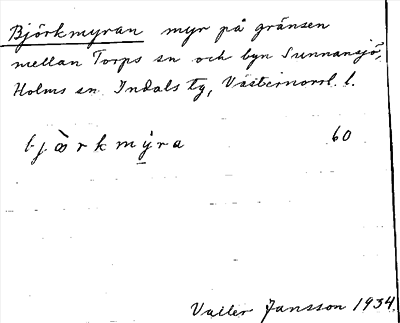 Björkmyran myr på gränsen
mellan Torps sn och byn Sunnansjö,
Holms sn Indals tg, Västernorrl. l.
bjœ̀rkmy̠ra 60
Valter Jansson 1934.